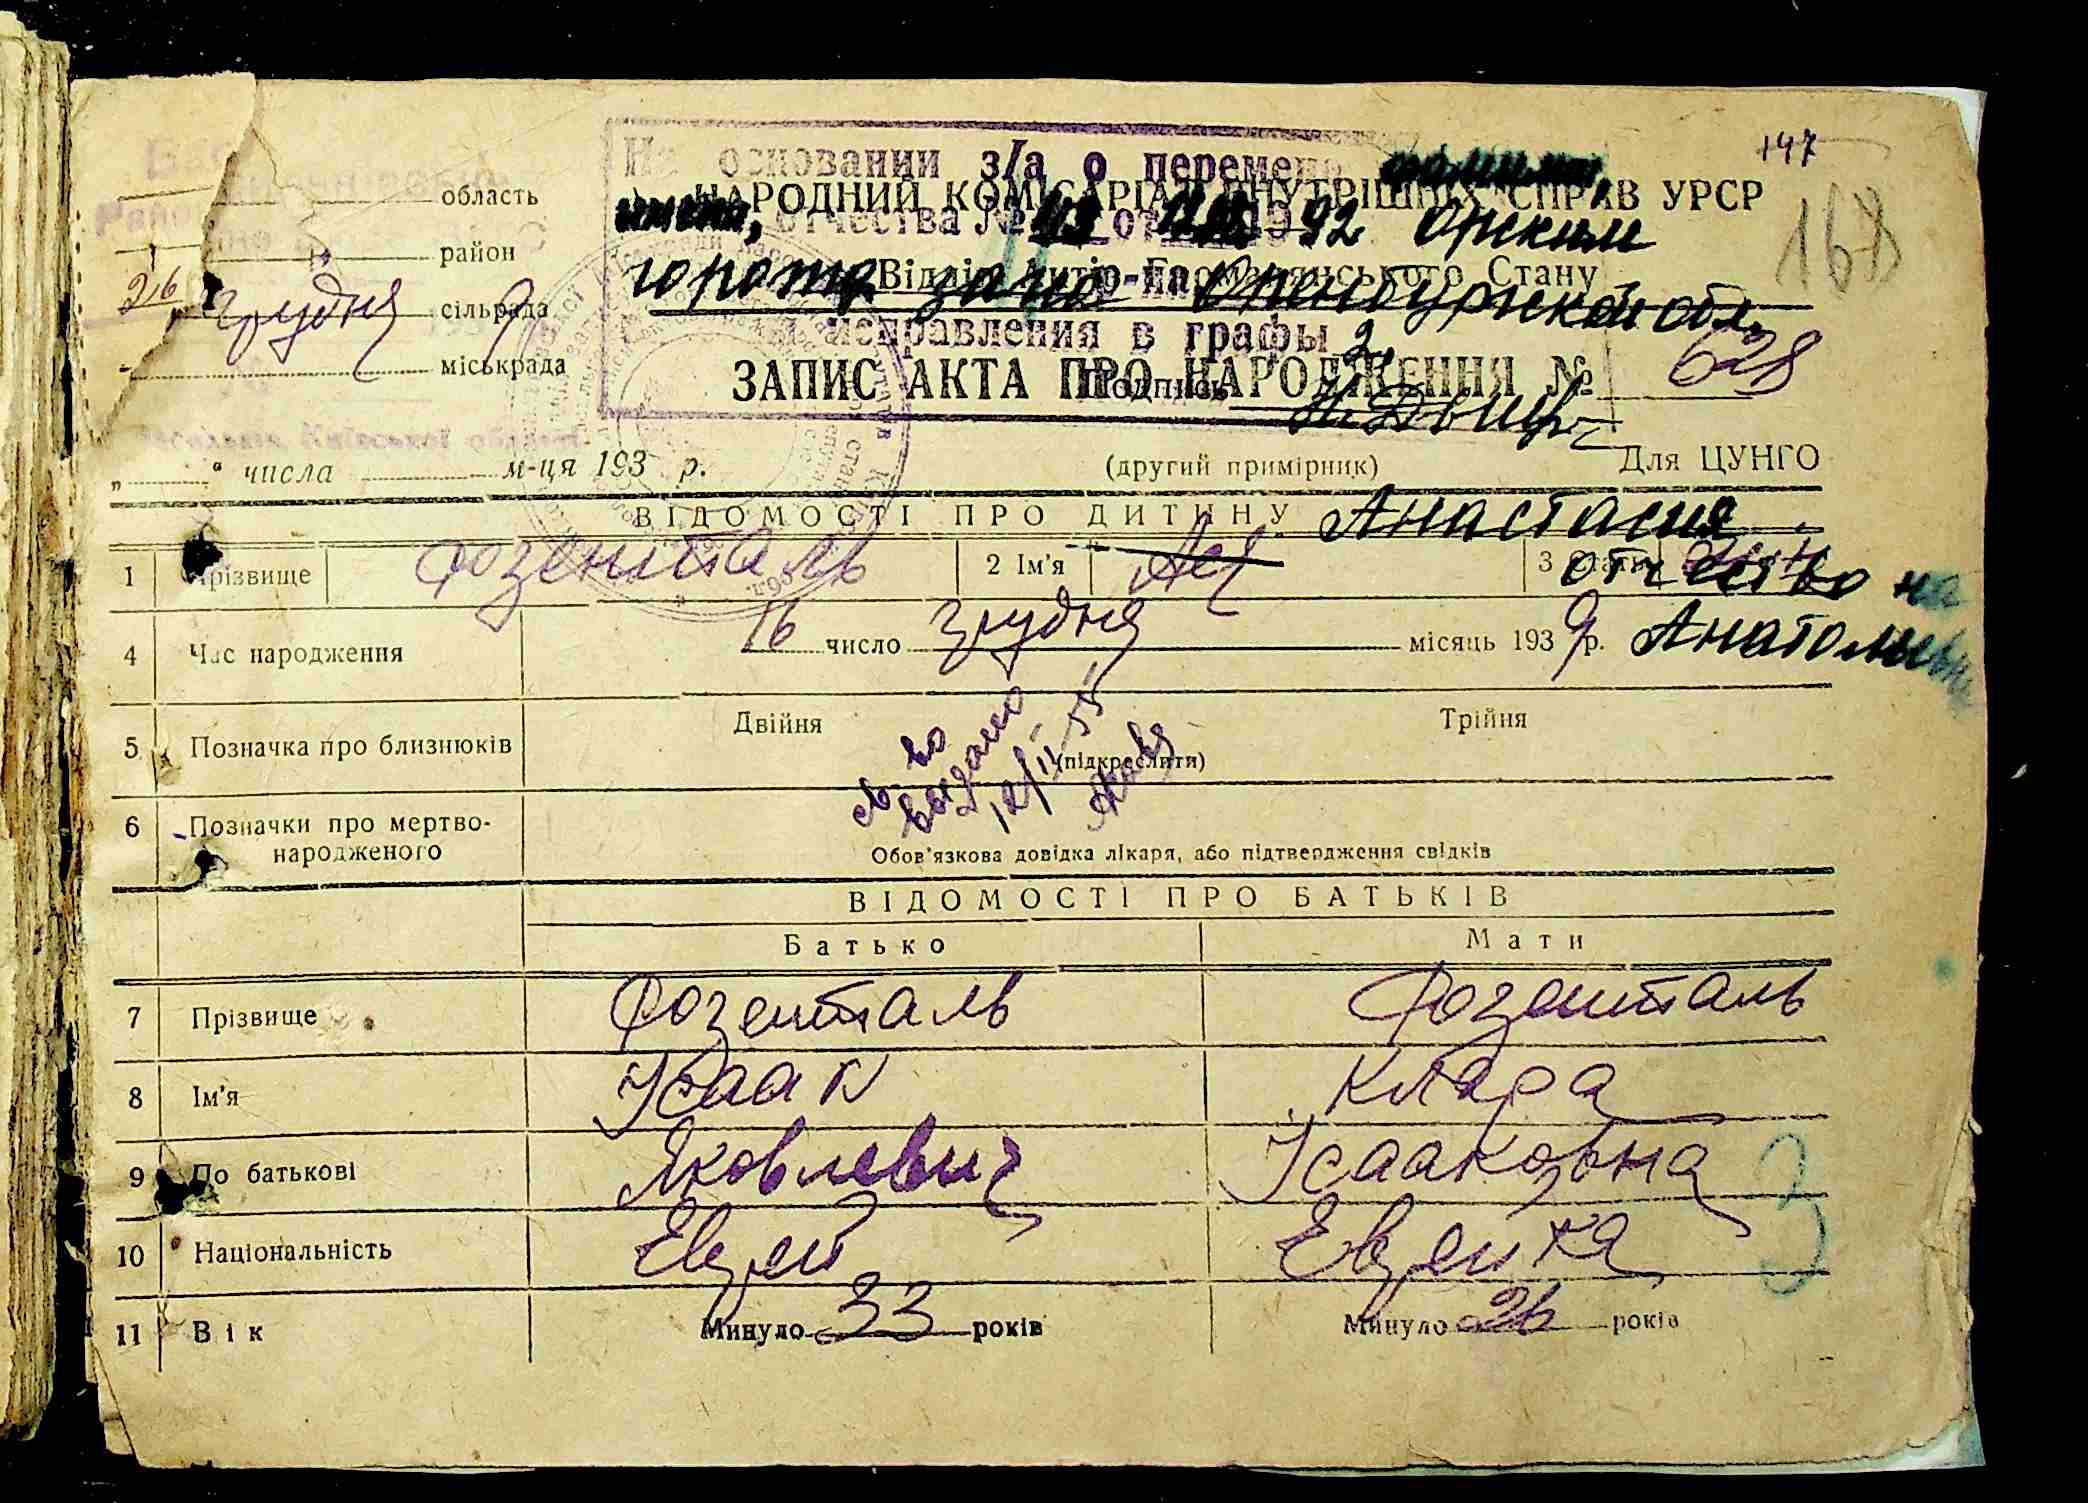 147
168
На основании з/а о перемене фамилии,
имени, отчества № от 1992 Орским
горотд. загса р-на Оренбургской обл.
исправления в графы 2,
Подпись
область
район
сільрада
міськрада
26 грудня 9
НАРОДНИЙ КОМІСАРІАТ ВНУТРІШНІХ СПРАВ УРСР
Відділ Актів Громадянського Стану
ЗАПИС АКТА ПРО НАРОДЖЕННЯ № 628
Київської області
„ “ числа м-ця 193 р.
(другий примірник)
Для ЦУНГО
ВІДОМОСТІ ПРО ДИТИНУ
Анастасия
1 Прізвище Розенталь 2 Ім'я Ася 3 Стать
отчество на
Анатольевна
4 Час народження 16 число грудня місяць 1939 р.
5 Позначка про близнюків Двійня Трійня
(підкреслити)
св во
выдано
12/II 55
6 Позначки про мертво-
народженого
Обов'язкова довідка лікаря, або підтвердження свідків
ВІДОМОСТІ ПРО БАТЬКІВ
Батько Мати
7 Прізвище Розенталь Розенталь
8 Ім'я Ісаак Клара
9 По батькові Яковлевич Ісааковна
10 Національність Еврей Еврейка
11 Вік Минуло 33 років Минуло 26 років
3